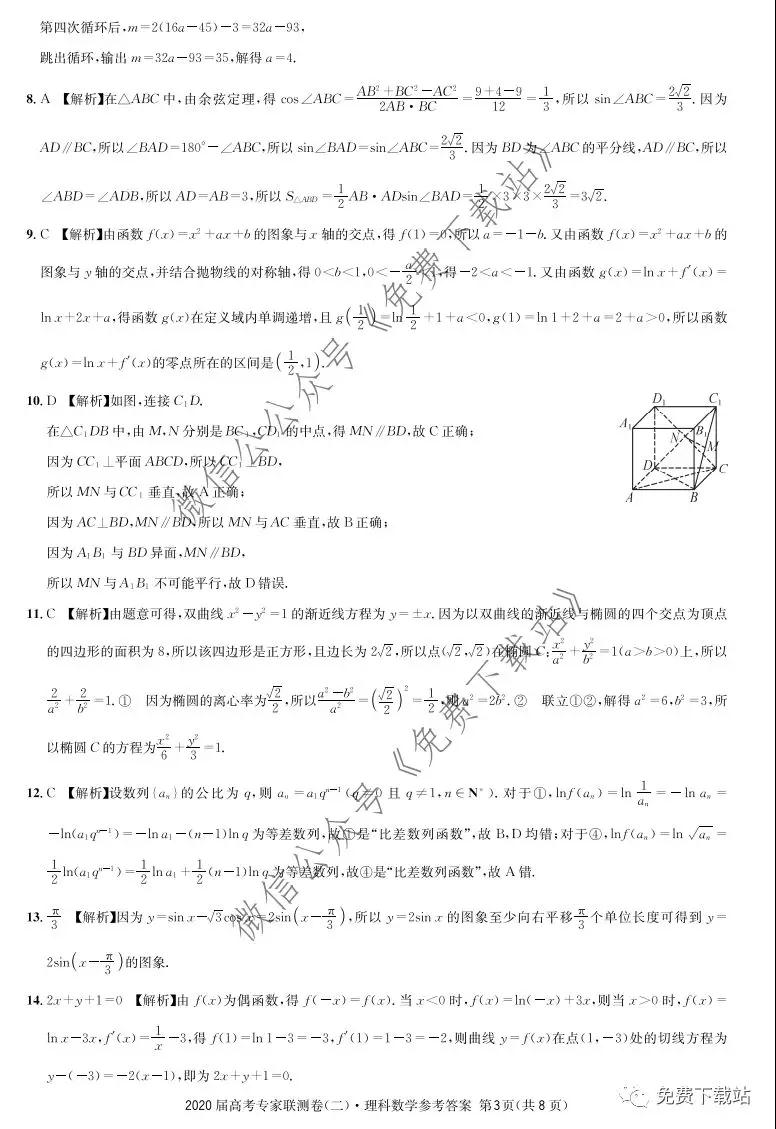 第四次循环后,m=2(16a-45)-3=32a-93,
跳出循环,输出 m=32a-93=35,解得 a=4.
8. A 【解析】在△ABC 中,由余弦定理,得 cos∠ABC=(AB²+BC²-AC²)/(2AB·BC)=(9+4-9)/12=1/3,所以 sin∠ABC=2√2/3.因为
AD∥BC,所以∠BAD=180°-∠ABC,所以 sin∠BAD=sin∠ABC=2√2/3.因为 BD 为∠ABC 的平分线,AD∥BC,所以
∠ABD=∠ADB,所以 AD=AB=3,所以 S△ABD=1/2 AB·ADsin∠BAD=1/2×3×3×2√2/3=3√2.
9. C 【解析】由函数 f(x)=x²+ax+b 的图象与 x 轴的交点,得 f(1)=0,所以 a=-1-b.又由函数 f(x)=x²+ax+b 的
图象与 y 轴的交点,并结合抛物线的对称轴,得 0<b<1,0<-a/2<1,得-2<a<-1.又由函数 g(x)=ln x+f′(x)=
ln x+2x+a,得函数 g(x)在定义域内单调递增,且 g(1/2)=ln 1/2+1+a<0,g(1)=ln 1+2+a=2+a>0,所以函数
g(x)=ln x+f′(x)的零点所在的区间是(1/2,1).
10. D 【解析】如图,连接 C₁D.
在△C₁DB 中,由 M,N 分别是 BC₁,CD₁ 的中点,得 MN∥BD,故 C 正确;
因为 CC₁⊥平面 ABCD,所以 CC₁⊥BD,
所以 MN 与 CC₁ 垂直,故 A 正确;
因为 AC⊥BD,MN∥BD,所以 MN 与 AC 垂直,故 B 正确;
因为 A₁B₁ 与 BD 异面,MN∥BD,
所以 MN 与 A₁B₁ 不可能平行,故 D 错误.
D₁ C₁
A₁ B₁
N M
D C
A B
11. C 【解析】由题意可得,双曲线 x²-y²=1 的渐近线方程为 y=±x.因为以双曲线的渐近线与椭圆的四个交点为顶点
的四边形的面积为 8,所以该四边形是正方形,且边长为 2√2,所以点(√2,√2)在椭圆 C:x²/a²+y²/b²=1(a>b>0)上,所以
2/a²+2/b²=1.① 因为椭圆的离心率为√2/2,所以(a²-b²)/a²=(√2/2)²=1/2,则 a²=2b².② 联立①②,解得 a²=6,b²=3,所
以椭圆 C 的方程为x²/6+y²/3=1.
12. C 【解析】设数列{aₙ}的公比为 q,则 aₙ=a₁qⁿ⁻¹(q≠0 且 q≠1,n∈N*).对于①,lnf(aₙ)=ln 1/aₙ=-ln aₙ=
-ln(a₁qⁿ⁻¹)=-ln a₁-(n-1)ln q 为等差数列,故①是“比差数列函数”,故 B,D 均错;对于④,lnf(aₙ)=ln √aₙ=
1/2 ln(a₁qⁿ⁻¹)=1/2 ln a₁+1/2(n-1)ln q 为等差数列,故④是“比差数列函数”,故 A 错.
13. π/3 【解析】因为 y=sin x-√3cos x=2sin(x-π/3),所以 y=2sin x 的图象至少向右平移π/3个单位长度可得到 y=
2sin(x-π/3)的图象.
14. 2x+y+1=0 【解析】由 f(x)为偶函数,得 f(-x)=f(x).当 x<0 时,f(x)=ln(-x)+3x,则当 x>0 时,f(x)=
ln x-3x,f′(x)=1/x-3,得 f(1)=ln 1-3=-3,f′(1)=1-3=-2,则曲线 y=f(x)在点(1,-3)处的切线方程为
y-(-3)=-2(x-1),即为 2x+y+1=0.
2020 届高考专家联测卷(二)·理科数学参考答案 第 3 页(共 8 页)
微信公众号《免费下载站》
微信公众号《免费下载站》
免费下载站